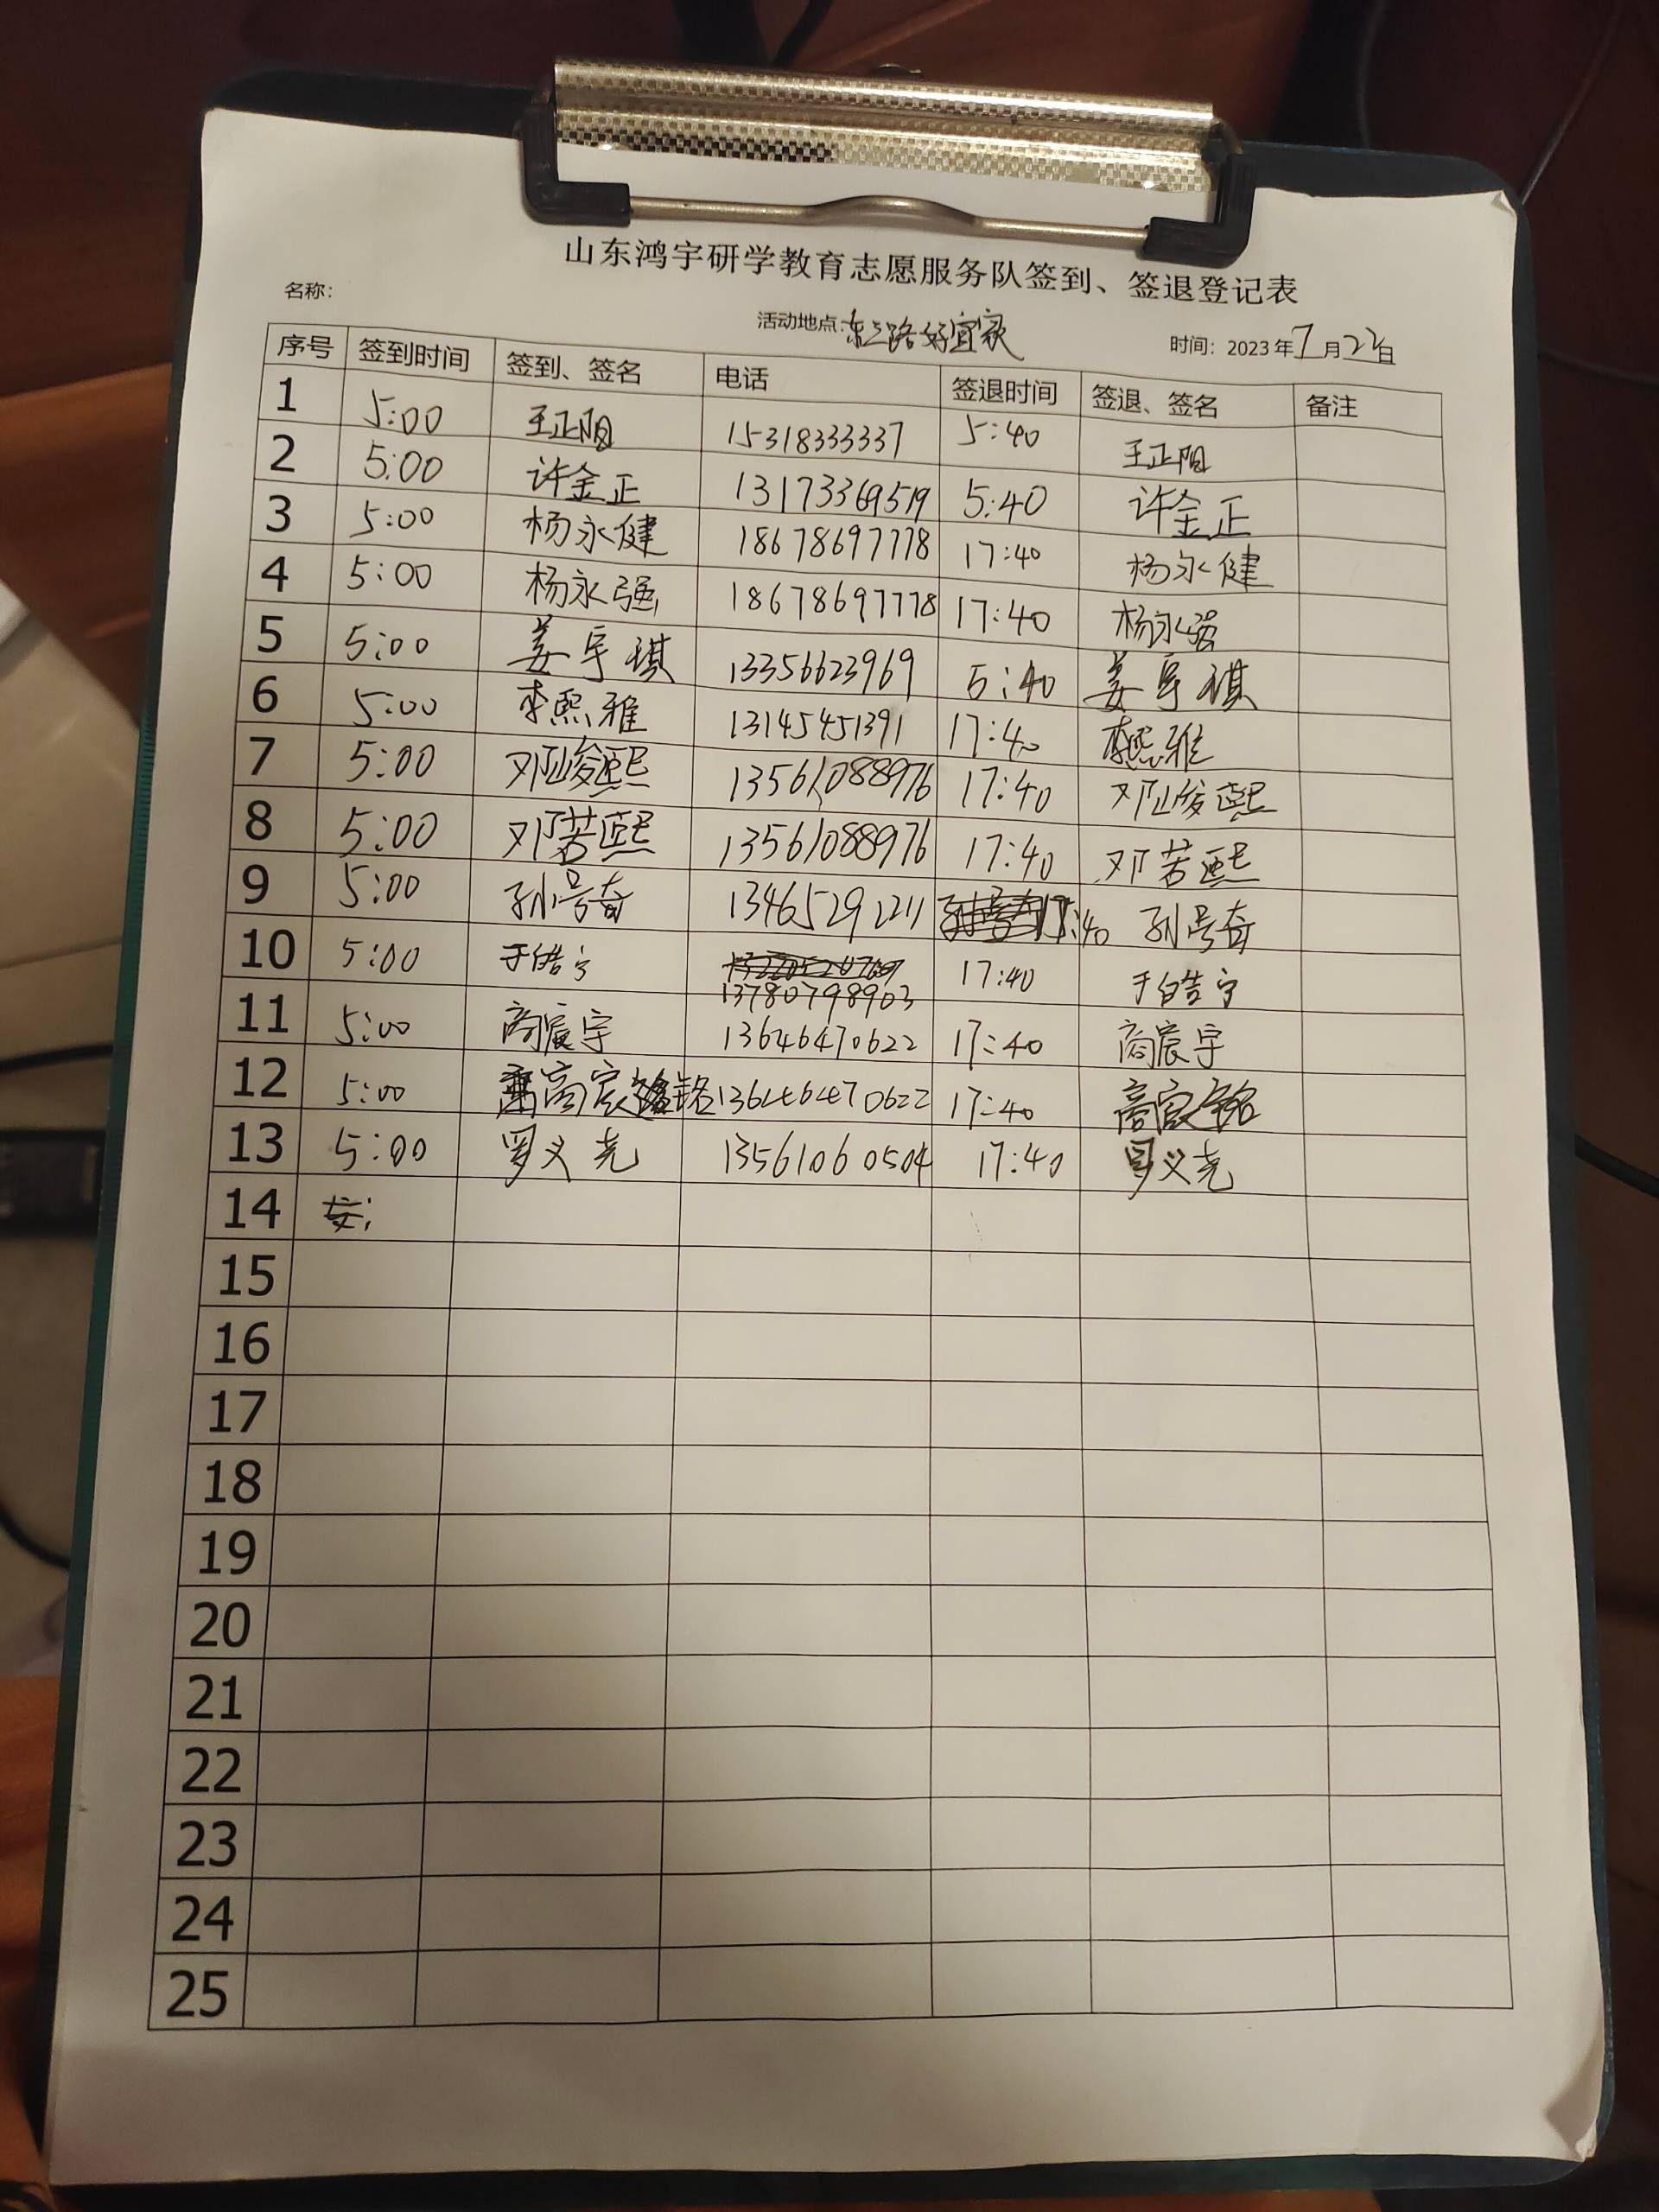 山东鸿宇研学教育志愿服务队签到、签退登记表
名称： 活动地点：东三路好宜家 时间：2023年7月22日
序号 签到时间 签到、签名 电话 签退时间 签退、签名 备注
1 5:00 王正阳 15318333337 5:40 王正阳
2 5:00 许金正 13173369519 5:40 许金正
3 5:00 杨永健 18678697778 17:40 杨永健
4 5:00 杨永强 18678697778 17:40 杨永强
5 5:00 姜宇琪 13356623969 5:40 姜宇琪
6 5:00 李熙雅 13145451391 17:40 李熙雅
7 5:00 邓峻熙 13561088976 17:40 邓峻熙
8 5:00 邓若熙 13561088976 17:40 邓若熙
9 5:00 孙号奇 13465292211 17:40 孙号奇
10 5:00 于皓宁 13780798903 17:40 于皓宁
11 5:00 商宸宇 13646470622 17:40 商宸宇
12 5:00 商宸铭 13646470622 17:40 商宸铭
13 5:00 罗义尧 13561060504 17:40 罗义尧
14
15
16
17
18
19
20
21
22
23
24
25